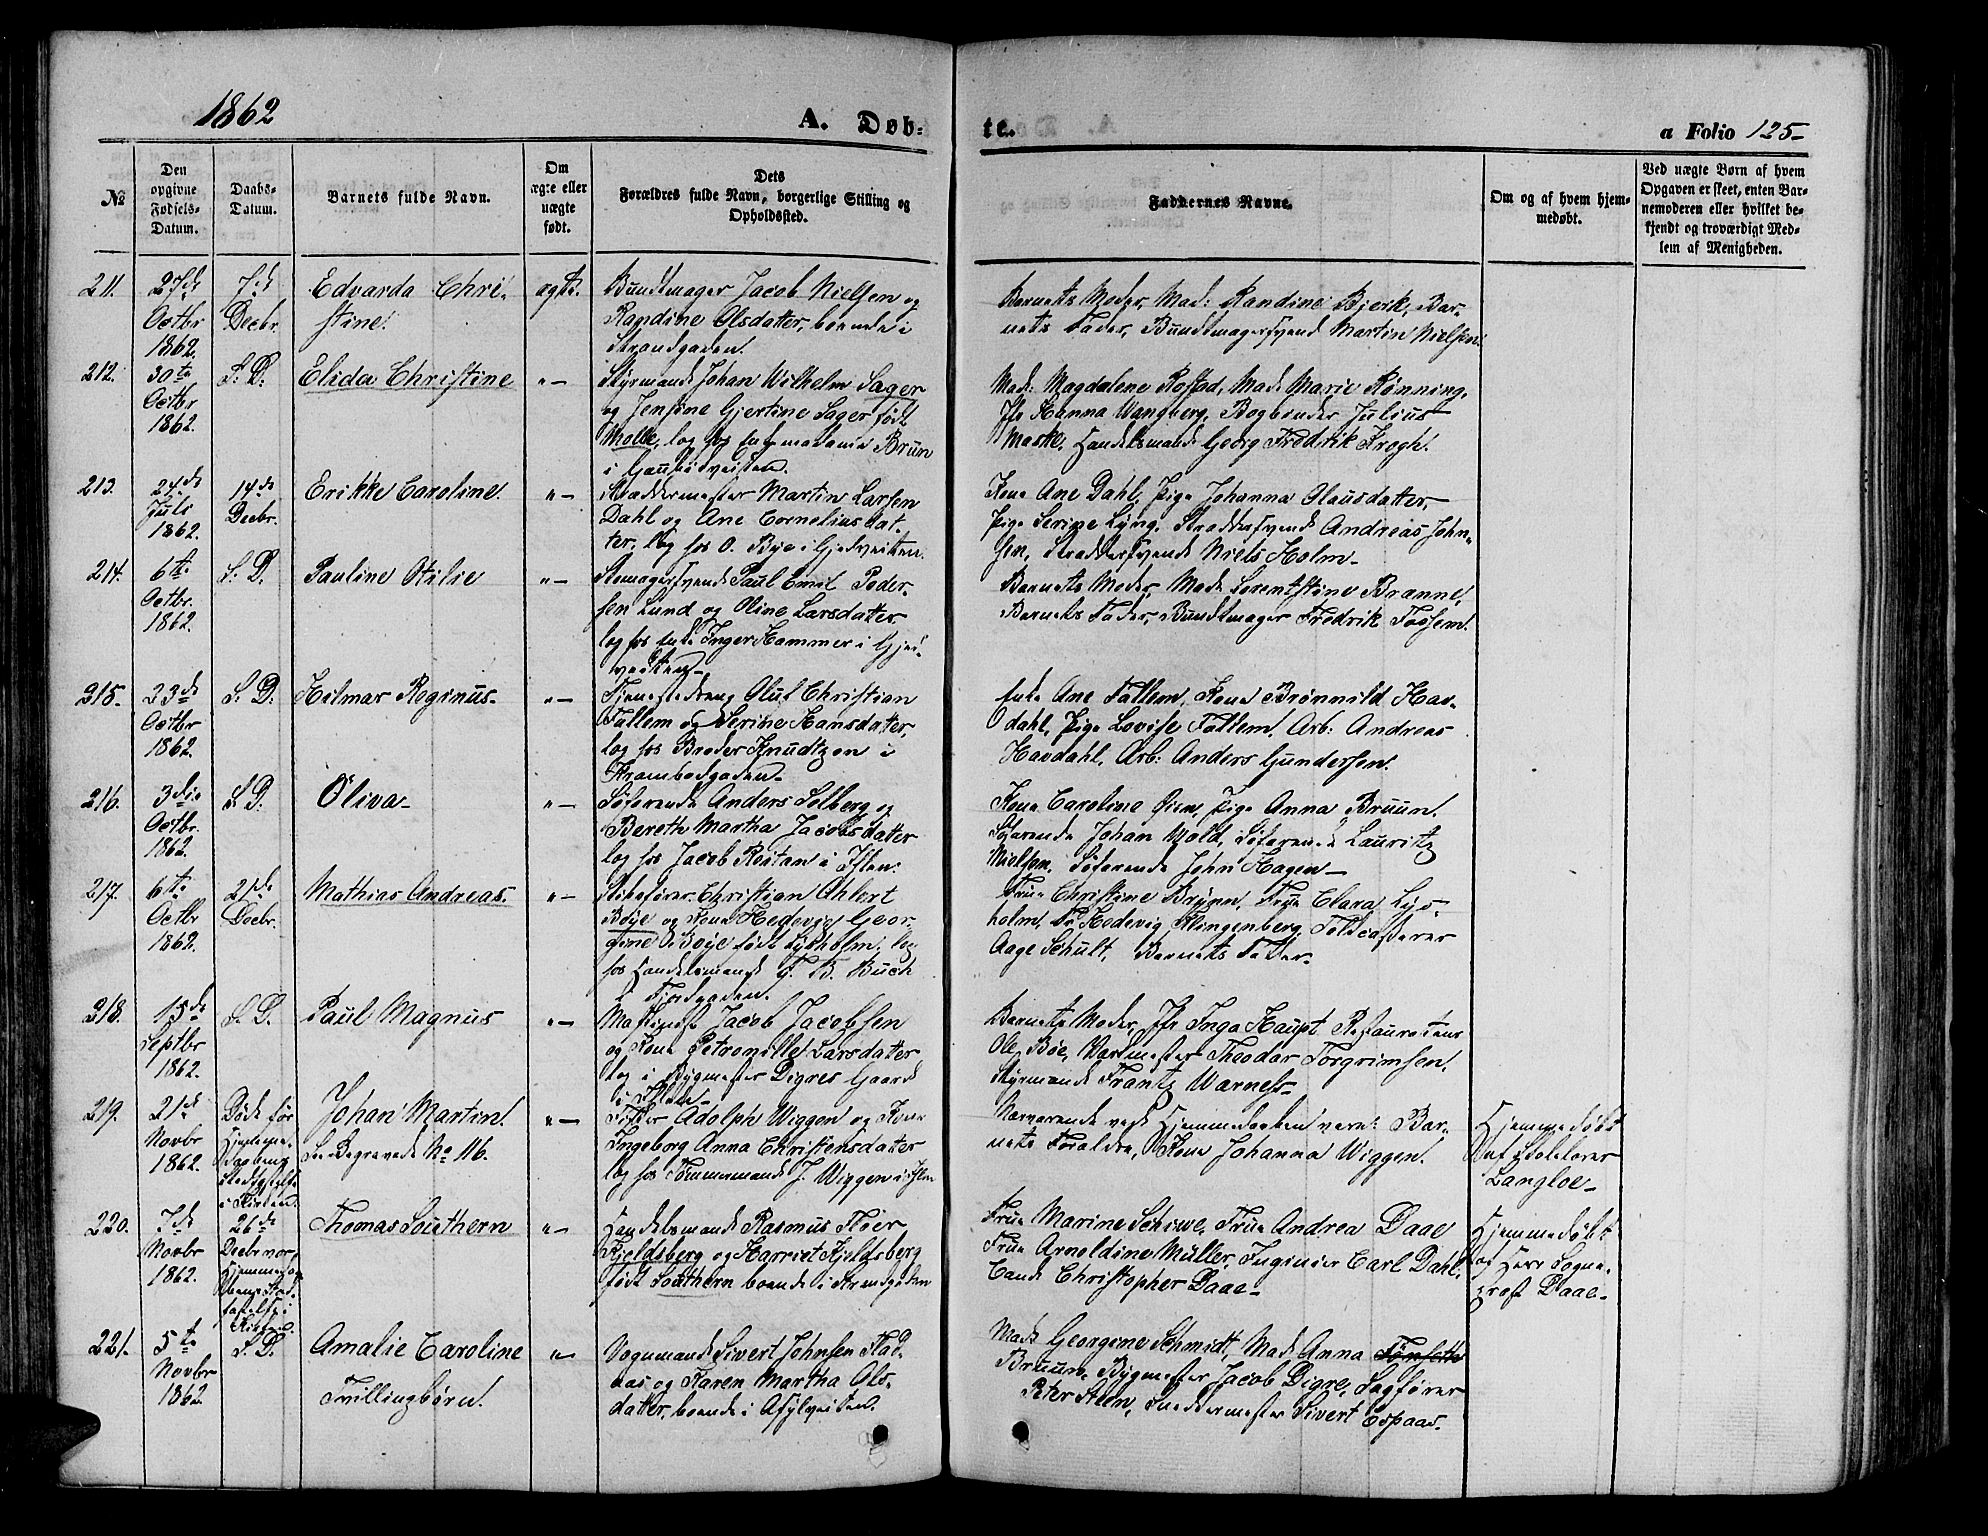 1862
A. Døb-
te.
a Folio 125-
№
Den
opgivne
Fødsels-
Datum.
Daabs-
Datum.
Barnets fulde Navn.
Om
ægte eller
uægte
født.
Dets
Forældres fulde Navn, borgerlige Stilling og
Opholdssted.
Faddernes Navne.
Om og af hvem hjem-
medøbt.
Ved uægte Børn af hvem
Opgaven er skeet, enten Bar-
nemoderen eller hvilket be-
kjendt og troværdigt Med-
lem af Menigheden.
211.
27de
Octbr
1862.
7de
Decbr.
Edvarda Chri-
stine.
ægte.
Bundtmager Jacob Nielsen og
Randine Olsdatter, boende i
Strandgaden.
Barnets Moder, Mad: Randine Bjerk, Bar-
nets Fader, Bundtmagersvend Martin Nielsen.
212.
30te
Octbr
1862.
S. D.
Elida Christine
"-
Styrmand Johan Wilhelm Sager
og Jensine Gjertine Sager født
Molle, log hos Enkemadame Bruun
i Gaubækveiten.
Mad: Magdalene Rosted, Mad: Marie Rønning,
Jfr Hanna Wangberg, Bogbinder Julius
Maske, Handelsmand Georg Fredrik Krogh.
213.
24de
Juli
1862.
14de
Decbr.
Erikke Caroline
"-
Skræddermester Martin Larsen
Dahl og Ane Corneliusdat-
ter, log hos O. Bye i Gjedveiten.
Kone Ane Dahl, Pige Johanna Olausdatter,
Pige Serine Lyng, Skræddersvend Andreas John-
sen, Skræddersvend Niels Holm-
214.
6te
Octbr.
1862.
S. D.
Pauline Otilie
"-
Skomagersvend Paul Emil Peder-
sen Lund og Oline Larsdatter
log hos Enke Inger Hammer i Gjed-
veiten-
Barnets Moder, Mad: Sorentstine Branne,
Barnets Fader, Bundtmager Fredrik Fossem.
215.
23de
Octbr
1862.
S. D.
Hilmar Reginus-
"-
Tjenestedreng Oluf Christian
Fallem og Serine Hansdatter,
log hos Broder Knudtzon i
Krambodgaden-
Enke Ane Fallem, Kone Brønnild Hav-
dahl, Pige Lovise Fallem, Arb: Andreas
Havdahl, Arb: Anders Gundersen.
216.
3die
Octbr.
1862.
S. D.
Oliva-
"-
Søfarende Anders Solberg og
Bereth Martha Jacobsdatter
log hos Jacob Reitan i Ihlen.
Kone Carolina Øien, Pige Anna Bruun.
Søfarende Johan Wold, Søfarende Lauritz
Nielsen, Søfarende John Hagen-
217.
6te
Octbr
1862.
21de
Decbr.
Mathias Andreas.
"-
Skibsfører Christian Ahlert
Bøje og Kone Hedevig Geor-
gine Bøje født Lysholm, log
hos Handelsmand F. B. Buch
i Fjordgaden.
Frue Christine Brynn, Frue Clara Lys-
holm, Fr Hedevig Klingenberg, Toldcasserer
Aage Schult, Barnets Fader-
218.
15de
Septbr
1862.
S. D.
Paul Magnus
"-
Maskinist Jacob Jacobsen
og Kone Petronille Larsdatter
log i Bygmester Digres Gaard
i Ihlen-
Barnets Moder, Jfr Inga Haupt, Restauratør
Ole Bøe, Værkmester Theodor Torgrimsen,
Styrmand Frantz Warness-
219.
21de
Novbr
1862.
Døde før
Hjemme-
daabens
Stadfæstelse
i Kirken.
Johan Martin.
Se Begravede No 116.
"-
Fisker Adolph Wiggen og Kone
Ingeborg Anna Christensdatter
log hos Tømmermand J. Wiggen i Ihlen
Nærværende ved Hjemmedaaben vare: Bar-
nets Forældre, Kone Johanna Wiggen.
Hjemmedøbt
af Skolelærer
Langloe-
220.
7de
Novbr
1862.
26de
Decbr var
Hjemmeda-
bens Stad-
fæstelse i
Kirken.
Thomas Southern
"-
Handelsmand Rasmus Støer
Kjeldsberg og Harriet Kjeldsberg
født Southern boende i Strandgaden
Frue Marine Schiwe, Frue Andrea Daae
Frue Arnoldine Müller, Ingeniør Carl Dahl,
Cand: Christopher Daae-
Hjemmedøbt
af Herr Sogne-
præst Daae-
221.
5te
Novbr
1862.
S. D.
Amalie Caroline
Tvillingbørn.
"-
Vognmand Sivert Johnsen Stad-
aas og Karen Martha Ols-
datter, boende i Asylveiten.
Mad: Georgene Schmidt, Mad: Anna Tønseth
Bruun, Bygmester Jacob Digre, Sagfører
Peter Steen, Snedkermester Sivert Espaas.